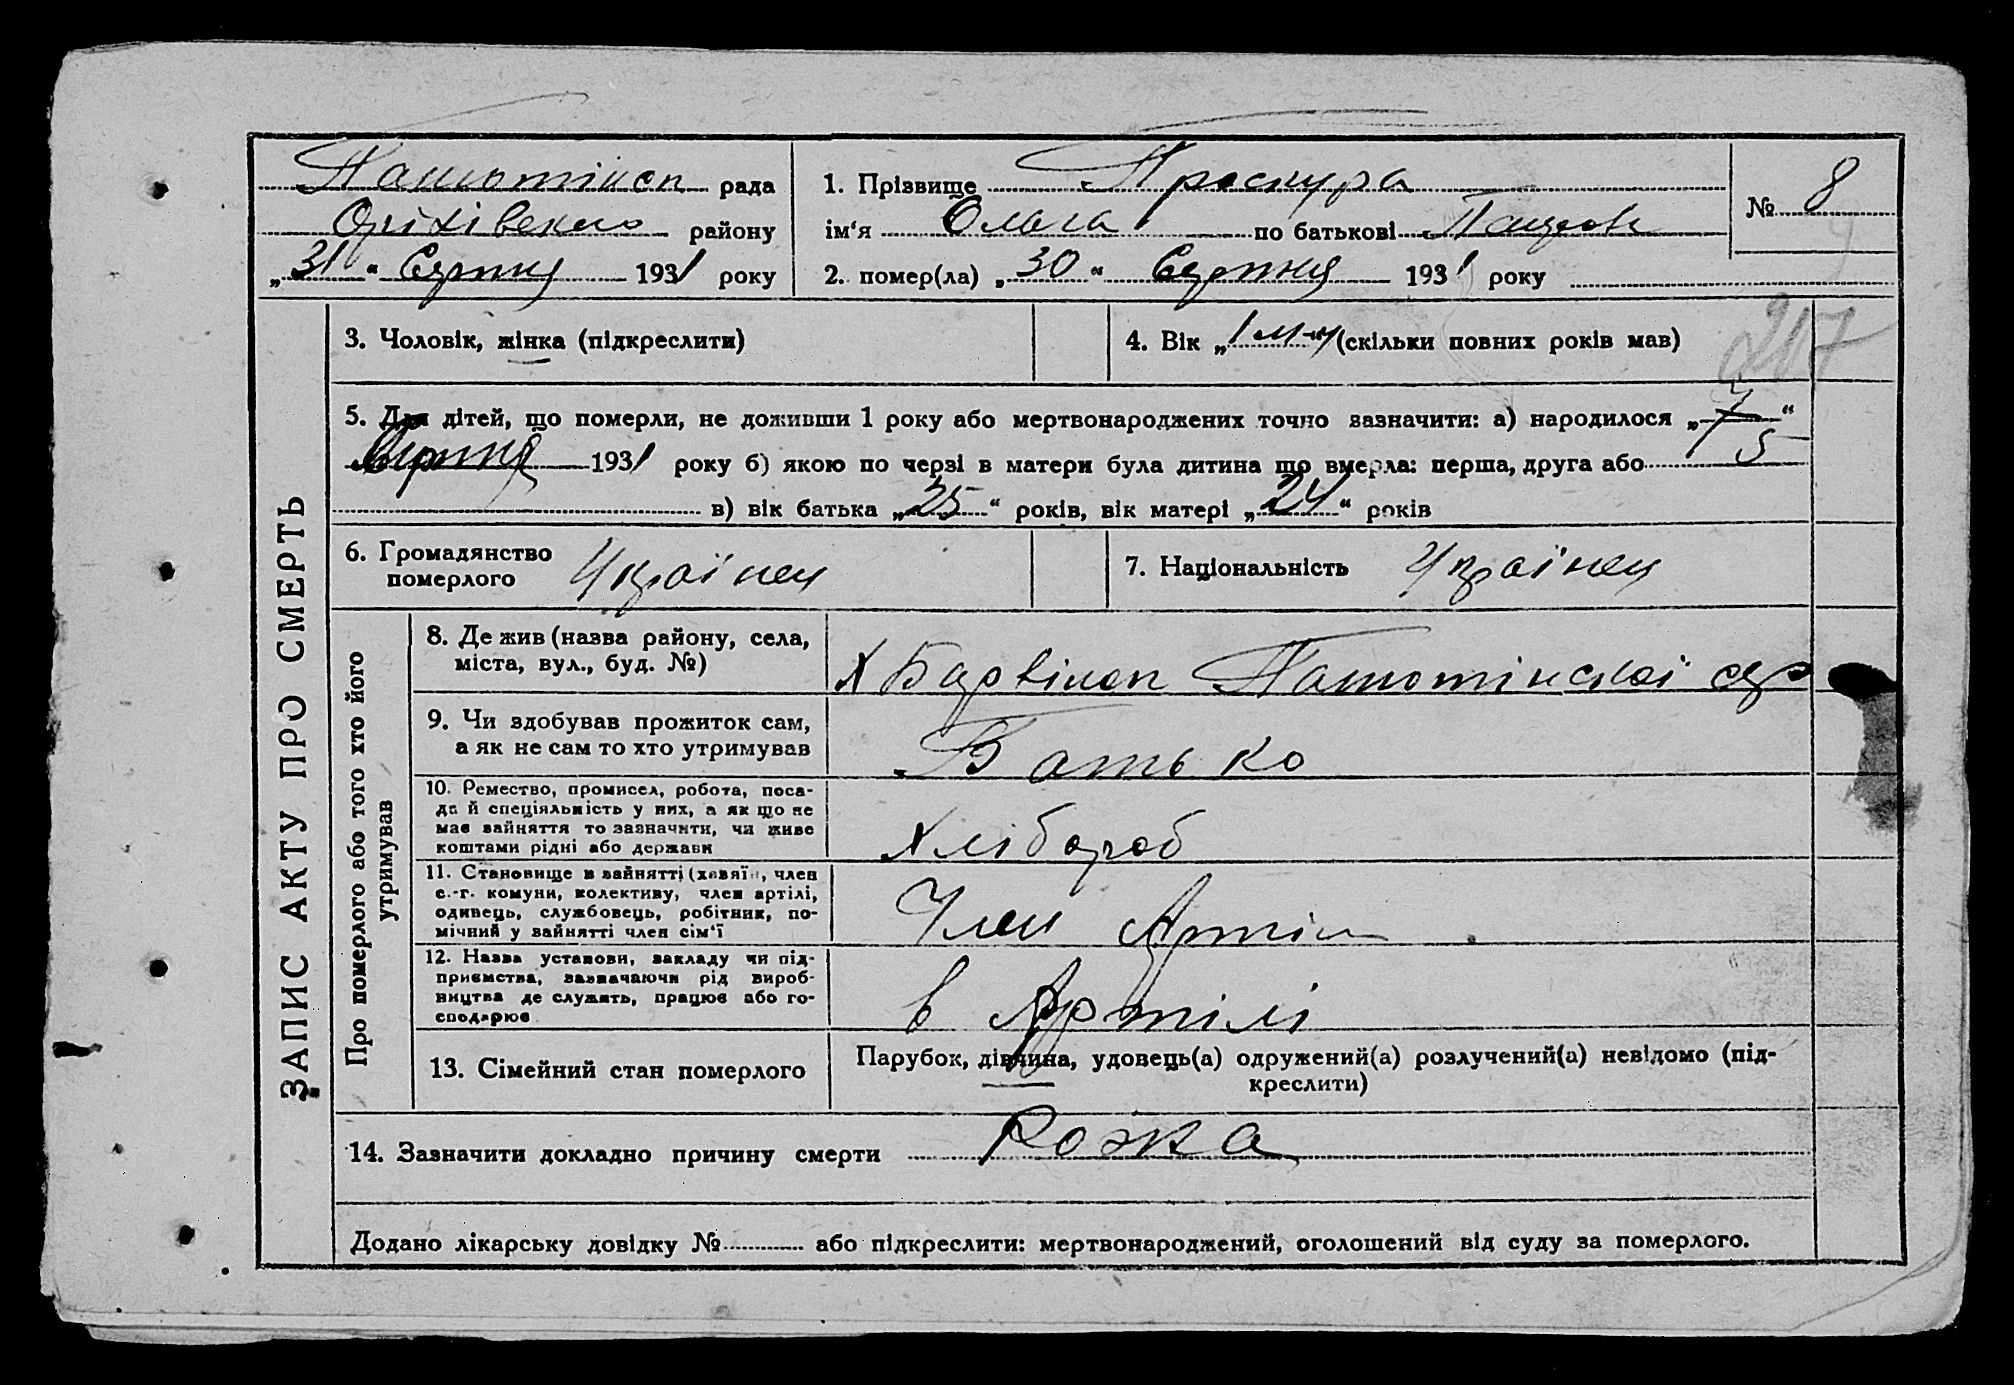 рада
Оріхівського району
„31“ Серпня 1931 року
1. Прізвище Проскура
ім‘я Ольга по батькові
2. помер(ла) „30“ Серпня 1931 року
№ 8
207
3. Чоловік, жінка (підкреслити)
4. Вік „1 м-ц“ (скільки повних років мав)
5. Для дітей, що померли, не доживши 1 року або мертвонароджених точно зазначити: а) народилося „7“
Серпня 1931 року б) якою по черзі в матери була дитина що вмерла: перша, друга або 5
в) вік батька „35“ років, вік матері „24“ років
6. Громадянство
померлого Українец
7. Національність Українец
ЗАПИС АКТУ ПРО СМЕРТЬ
Про померлого або того хто його
утримував
8. Де жив (назва району, села,
міста, вул., буд. №)
Х Барвінок
9. Чи здобував прожиток сам,
а як не сам то хто утримував
Батько
10. Ремество, промисел, робота, поса-
да й спеціяльність у них, а як що не
має зайняття то зазначити, чи живе
коштами рідні або держави
Хлібороб
11. Становище в зайнятті (хазяїн, член
с.-г. комуни, колективу, член артілі,
одинець, службовець, робітник, по-
мічний у зайнятті член сім‘ї
Член Артіли
12. Назва установи, закладу чи під-
приємства, зазначаючи рід вироб-
ництва де служить, працює або го-
сподарює
в Артілі
13. Сімейний стан померлого
Парубок, дівчина, удовець(а) одружений(а) розлучений(а) невідомо (під-
креслити)
14. Зазначити докладно причину смерти Рожа
Додано лікарську довідку № або підкреслити: мертвонароджений, оголошений від суду за померлого.